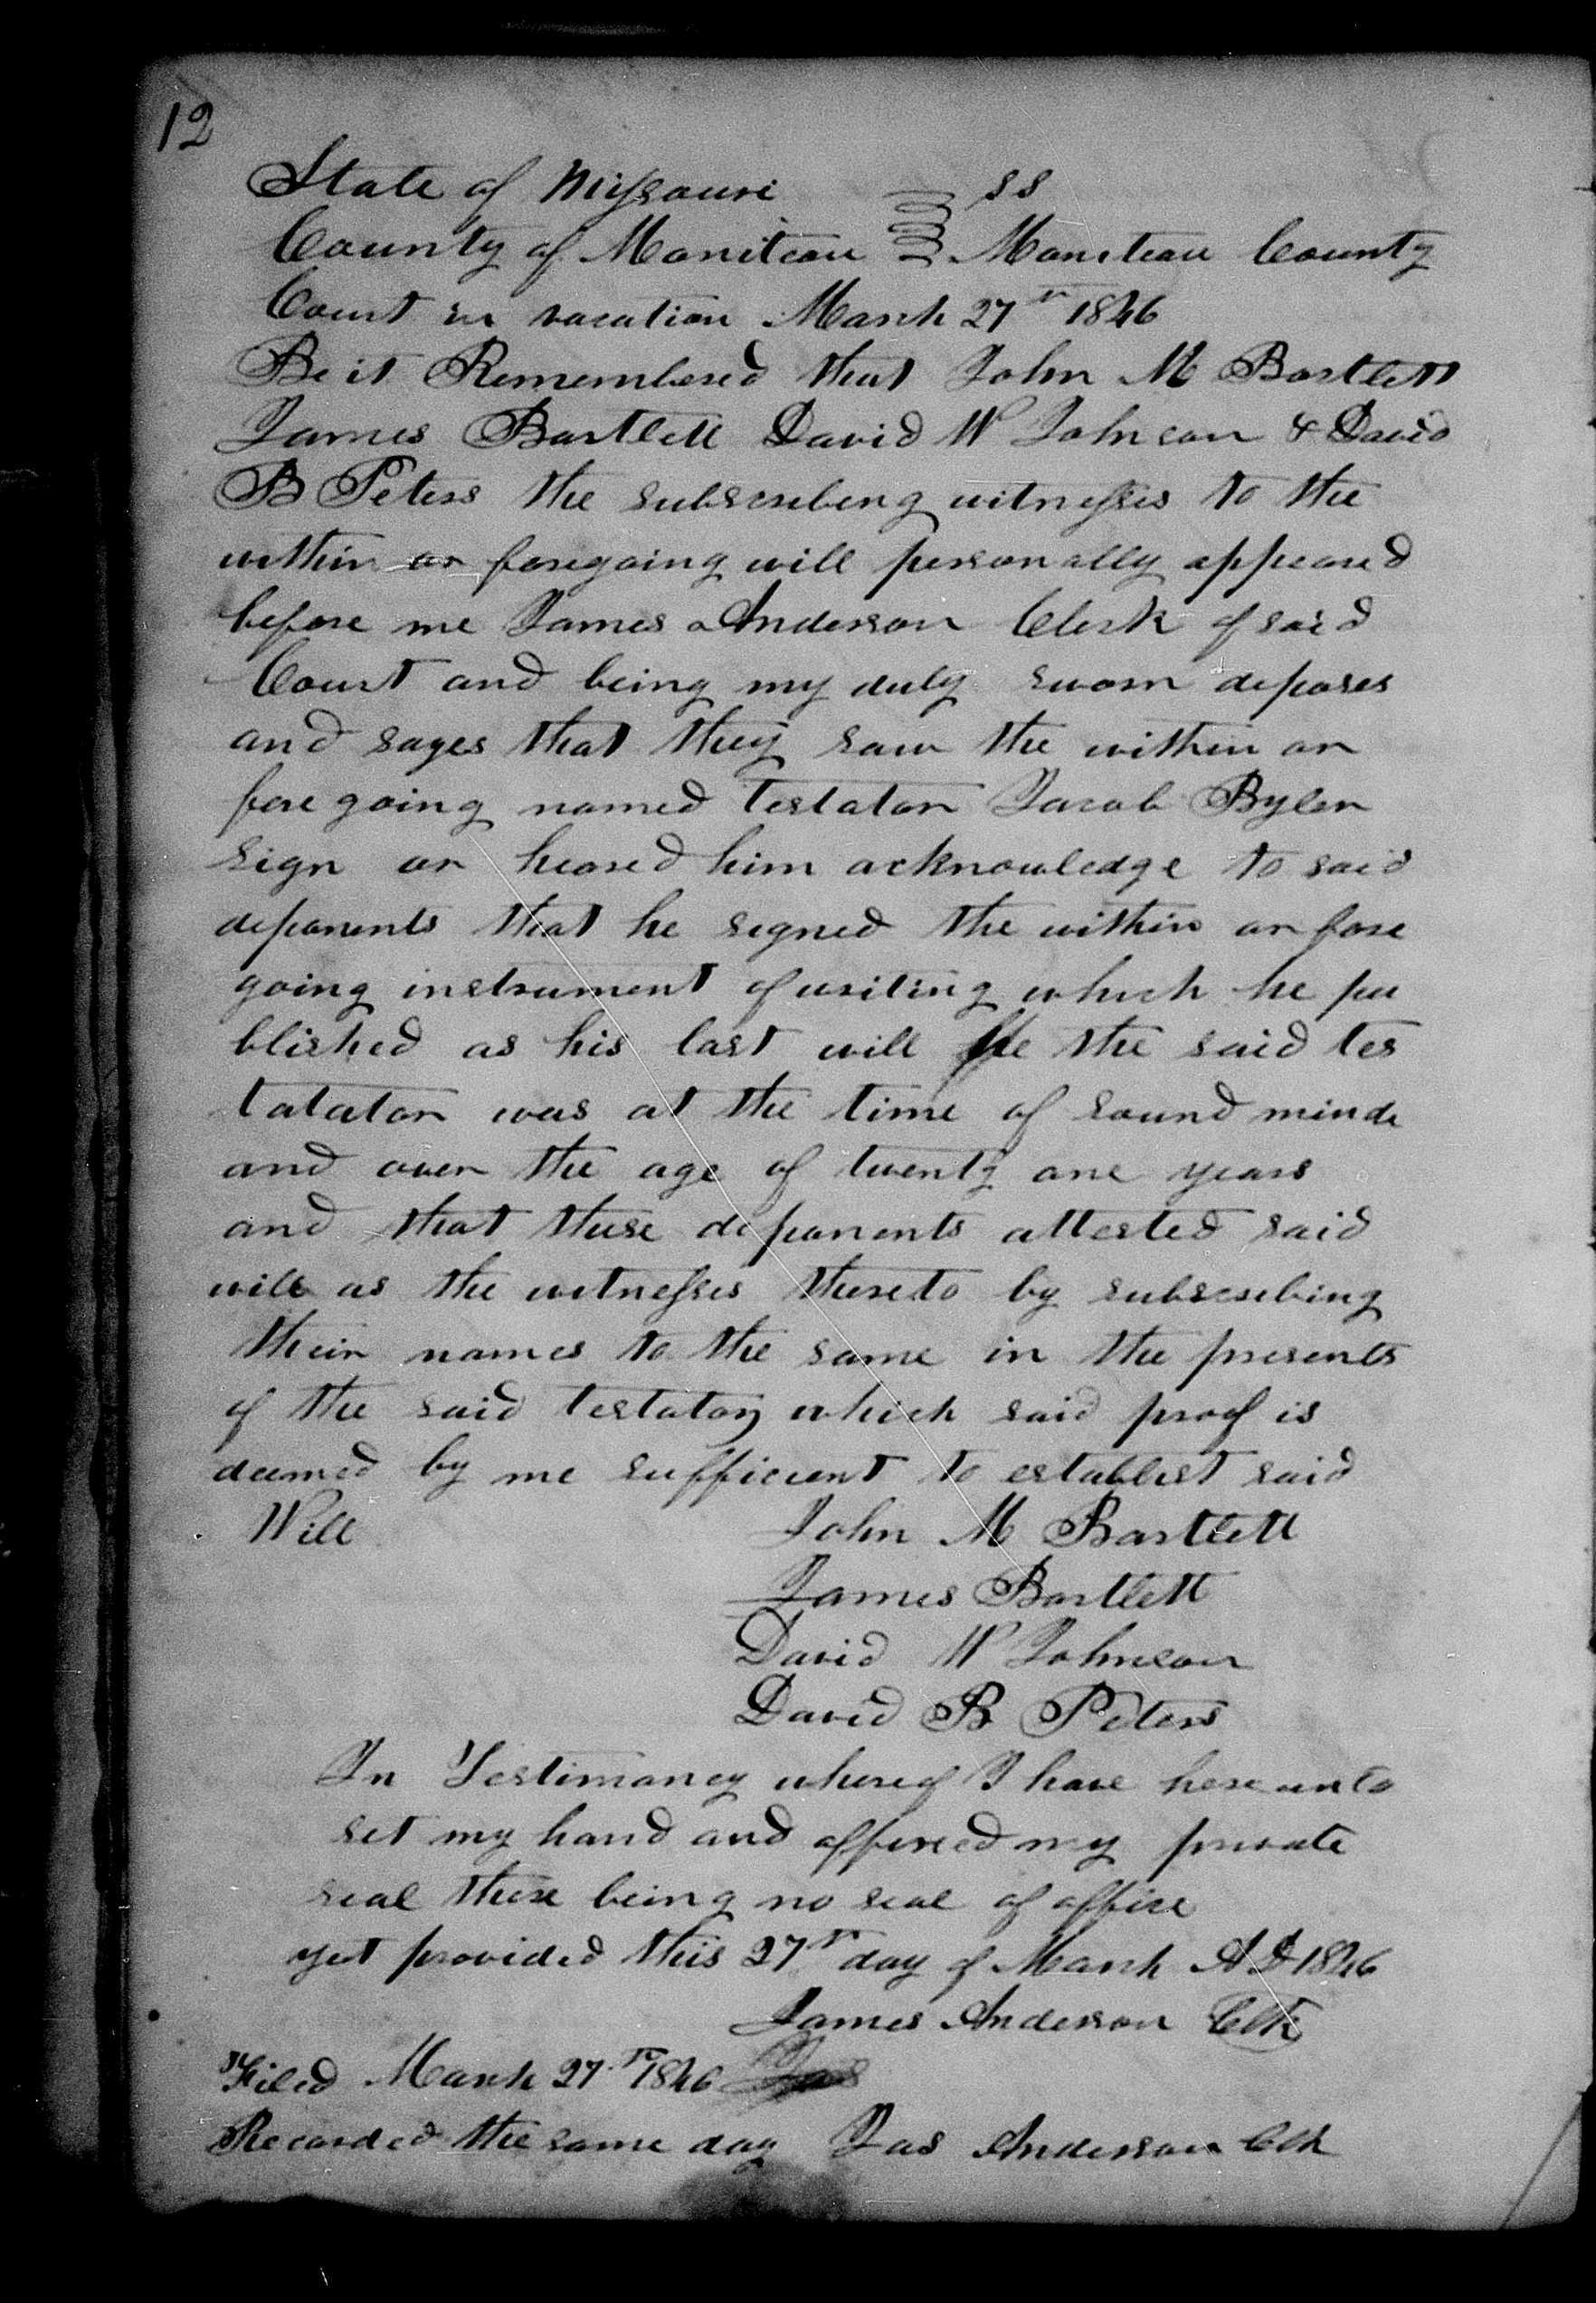 12
State of Missouri ss
County of Moniteau Moniteau County
Court in vacation March 27th 1846
Be it Remembered that John M Bartlett
James Bartlett David W Johnson & David
B Peters the subscribing witnesses to the
within or foregoing will personally appeared
before me James Anderson Clerk of said
Court and being my duly sworn deposes
and sayes that they saw the within or
fore going named testator Jacob Byler
sign or heared him acknowledge to said
deponents that he signed the within or fore
going instrument of writing which he pu
blished as his last will He the said tes
tatator was at the time of sound minde
and over the age of twenty one years
and that these deponents attested said
will as the witnesses thereto by subscribing
their names to the same in the presents
of the said testator which said proof is
deemed by me sufficient to establist said
Will John M Bartlett
James Bartlett
David W Johnson
David B Peters
In Testimoney whereof I have here unto
set my hand and affixed my private
seal there being no seal of office
yet provided this 27th day of March AD 1846
James Anderson Clk
Filed March 27th 1846 Jas
Recorded the same day Jas Anderson Clk